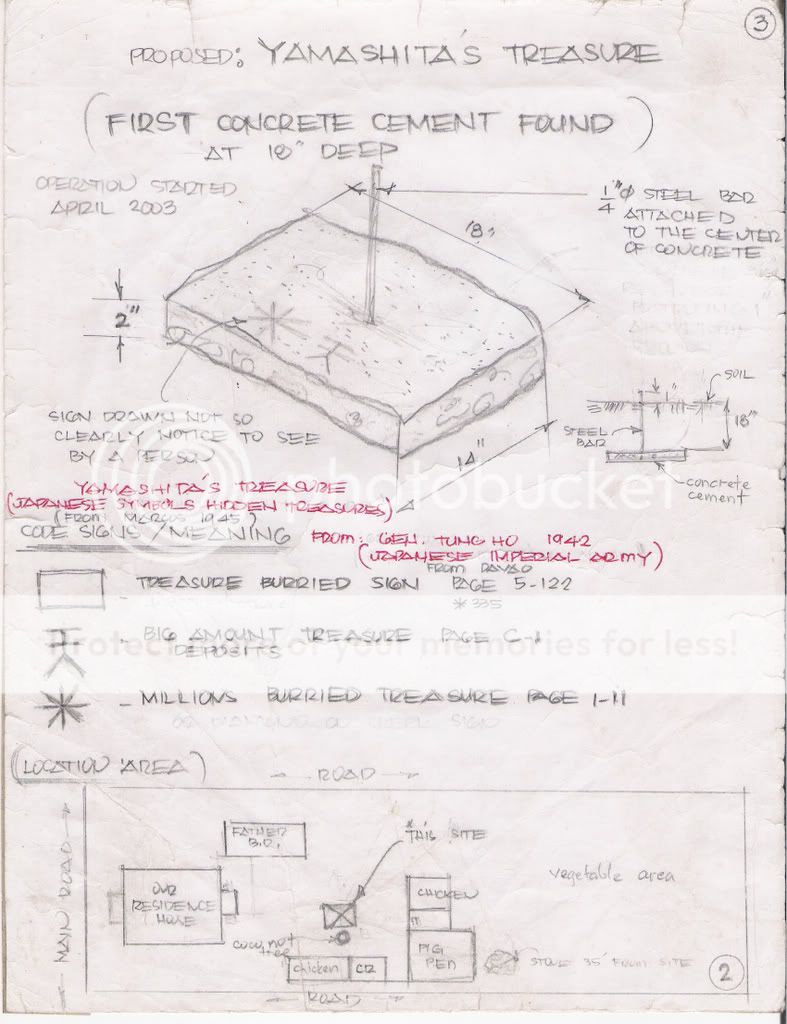 3
PROPOSED: YAMASHITA'S TREASURE
(FIRST CONCRETE CEMENT FOUND)
AT 18" DEEP
OPERATION STARTED
APRIL 2003
1/4"ø STEEL BAR
ATTACHED
TO THE CENTER
OF CONCRETE
18"
2"
14"
SIGN DRAWN NOT SO
CLEARLY NOTICE TO SEE
BY A PERSON
1"
SOIL
STEEL
BAR
18"
concrete
cement
photobucket
YAMASHITA'S TREASURE
(JAPANESE SYMBOLS HIDDEN TREASURES)
(FROM MARCOS 1945)
CODE SIGNS/MEANING
FROM: GEN. TUNG HO 1942
(JAPANESE IMPERIAL ARMY)
FROM DAVAO
- TREASURE BURRIED SIGN PAGE 5-122
*335
- BIG AMOUNT TREASURE PAGE C-1
DEPOSITS
Protect more of your memories for less!
- MILLIONS BURRIED TREASURE PAGE 1-11
(LOCATION AREA)
ROAD
MAIN ROAD
FATHER
B.R.
* THIS SITE
OUR
RESIDENCE
HOUSE
coconut
tree
CHICKEN
vegetable area
chicken
CR
PIG
PEN
STONE 35' FROM SITE
2
ROAD